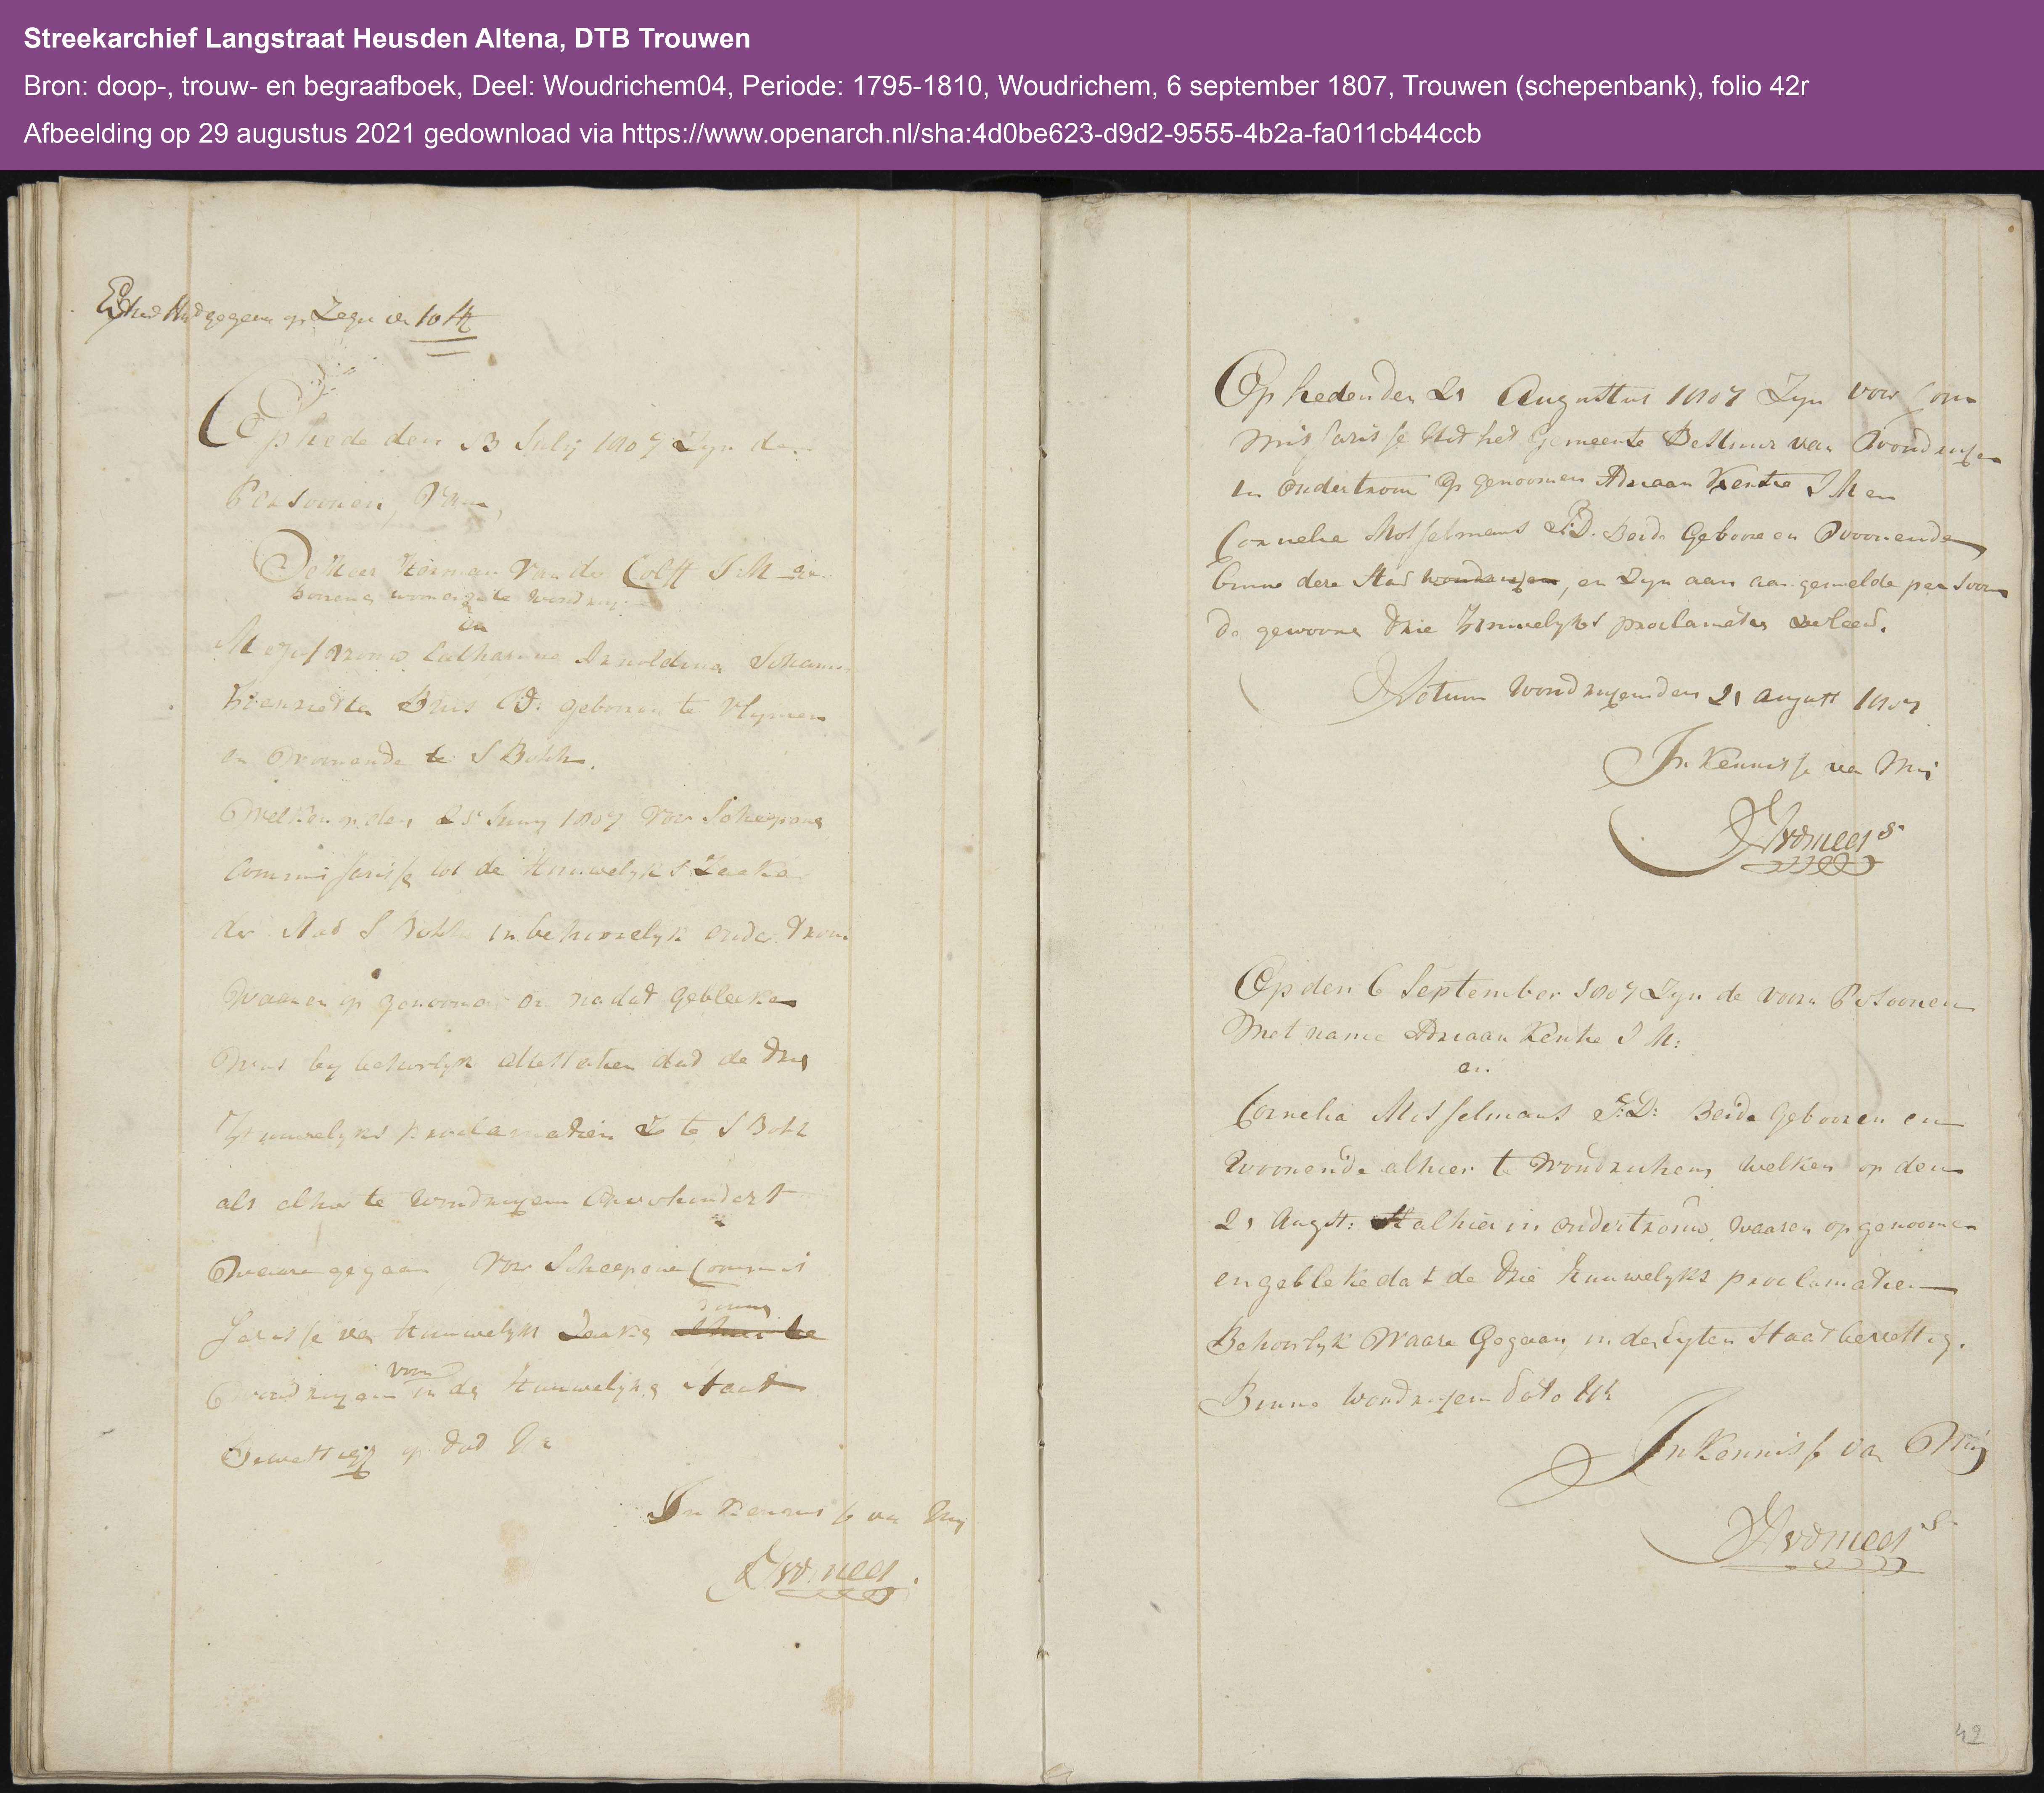 Streekarchief Langstraat Heusden Altena, DTB Trouwen
Bron: doop-, trouw- en begraafboek, Deel: Woudrichem04, Periode: 1795-1810, Woudrichem, 6 september 1807, Trouwen (schepenbank), folio 42r
Afbeelding op 29 augustus 2021 gedownload via https://www.openarch.nl/sha:4d0be623-d9d2-9555-4b2a-fa011cb44ccb
op Zegel van 10 st
Op hede den 13 July 1807 Zyn de
Persoonen, Van,
De Heer Herman Van der Colff J:M ge
boren en wonende te Woudrichem
en
Mejuffrouw Catharina Arnoldina Johanna
Henrietta Buis J:D: geboren te Vlymen
en Woonende te S Bosch.
Welken op den 25 Juny 1807 voor Schepene
Commissarisse tot de Huwelyks Zaake
der Stad S Bosch in behoorelyk ondertrouw
Waaren op genoomen en nadat gebleeken
Was by behoorlyk attestatien dat de drie
Huwelyks proclamatien te S Bosch
als alhier te Woudrichem onverhindert
Waare gegaan Voor Scheepene Commis
sarisse van Huwelyks Zaake
Woudrichem in de Huwelyks Staat
Bevestigt op dato
In Kennisse van My
Op heden den 21 Augustus 1807 Zyn voor Com
missarisse Uit het Gemeente Bestuur van Woudrichem
in ondertrouw op genoomen Adriaan Kentie J M en
Cornelia Mosselmans J:D. Beide Geboore en Woonende
binne deze Stad Woudrichem, en Zyn aan aangemelde persoon
de gewoone drie Huwelyks proclamatien verleend.
Actum Woudrichem den 21 August 1807
In Kennisse van My
Op den 6 September 1807 Zyn de voorn Persoonen
Met name Adriaan Kentie J M:
en
Cornelia Misselmans J:D: Beide Gebooren en
Woonende alhier te Woudrichem, Welken op den
21 Augst: alhier in ondertrouw, waaren opgenoomen
en gebleke dat de drie Huuwelyks proclamatien
Behoorlyk Waare Gegaan, in den Egten Staat bevestig.
Binne Woudrichem dato Uts
In Kennisse van My
42